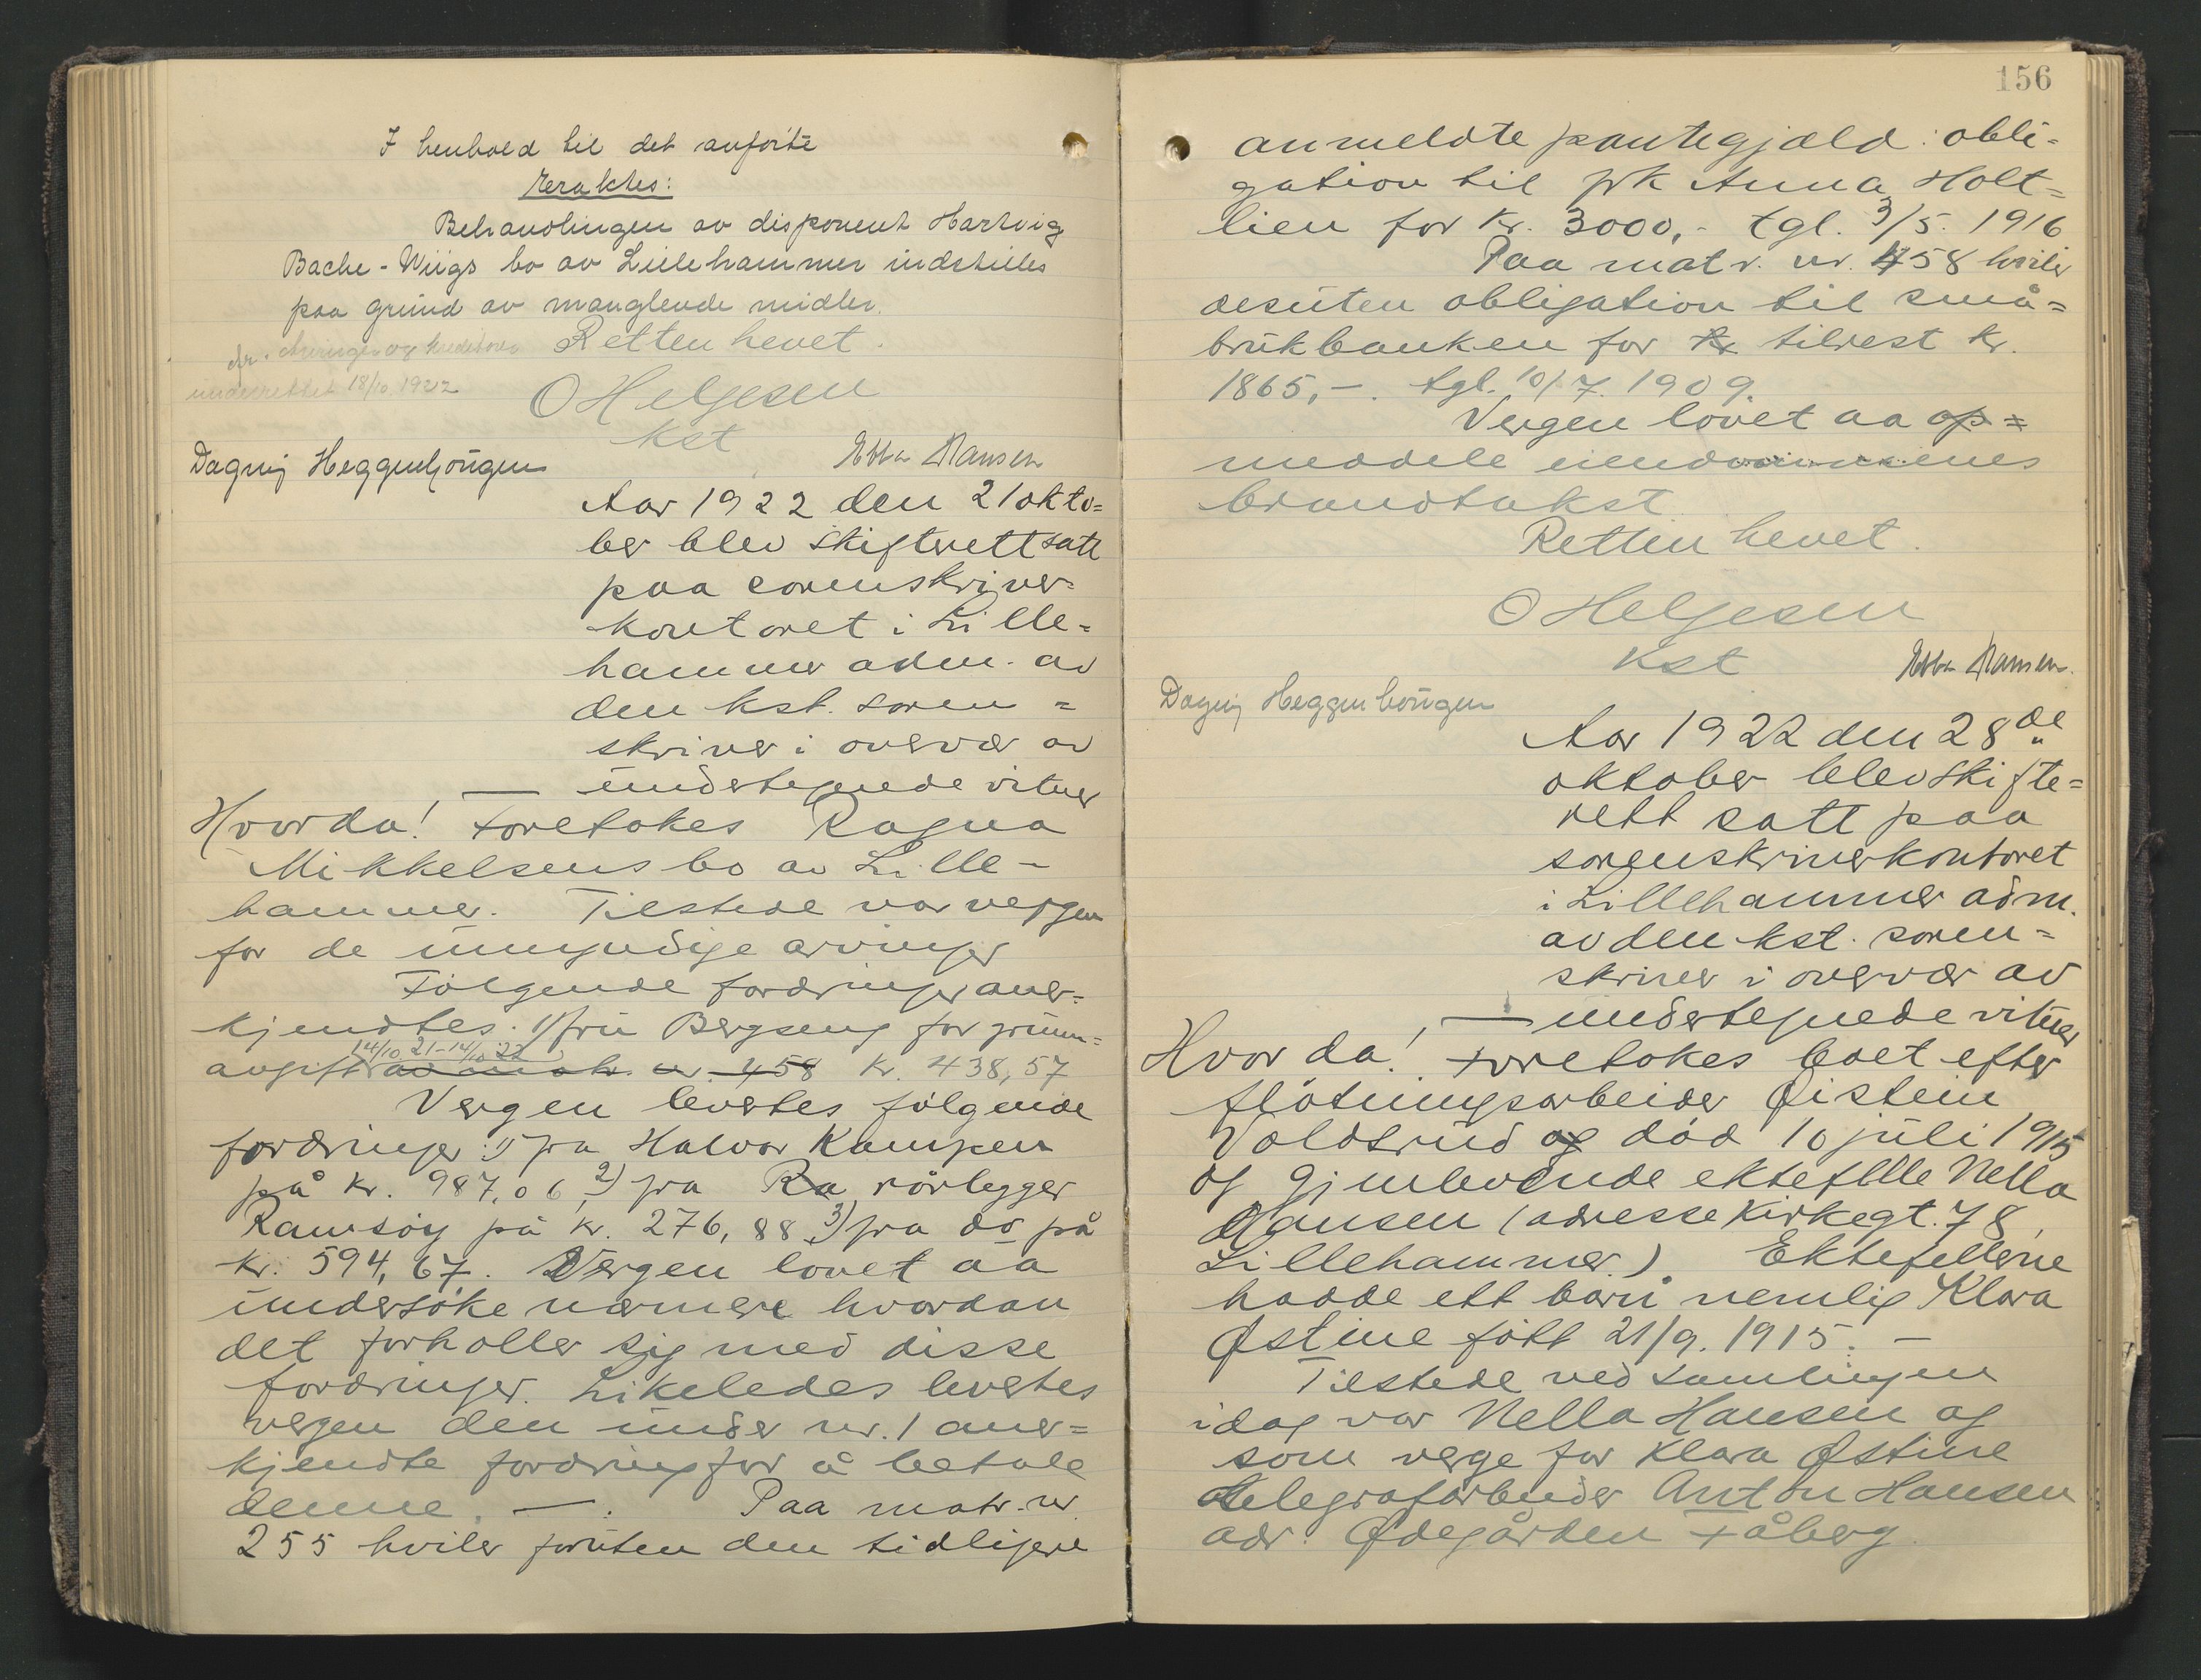 I henhold til det anførte
eraktes:
Behandlingen av disponent Hartvig
Bache-Wiigs bo av Lillehammer indstilles
paa grund av manglende midler.
Retten hevet.
underrettet 18/10 1922
OHelgesen
kst
Ebba Hansen
Dagny Heggenhougen
Aar 1922 den 21 okto=
ber blev skifterett satt
paa sorenskriver=
kontoret i Lille=
hammer adm. av
den kst. soren=
skriver i overvær av
— undertegnede vitner
Hvorda! Foretokes Ragna
Mikkelsens bo av Lille-
hammer. Tilstede var vergen
for de umyndige arvinger
Følgende fordringer aner=
kjendtes. 1) fru Bergseng for grunn=
14/10 21-14/10 22
avgift av matr. nr. 458 kr. 438,57
Vergen levertes følgende
fordringer: 1) fra Halvor Kampen
på kr. 987,06 2) fra Ra rörlegger
Ramsöy på kr. 276,88 3) fra do på
kr. 594,67. Vergen lovet aa
undersöke nærmere hvordan
det forholder sig med disse
fordringer. Likeledes levertes
vergen den under nr. 1 aner=
kjendte fordring for å betale
denne. —. Paa matr. nr.
255 hviler foruten den tidligere
156
anmeldte pantegjæld: obli=
gation til frk Anna Holt=
lien for kr. 3000,- tgl. 3/5. 1916
Paa matr. nr. 458 hviler
desuten obligation til små=
brukbanken for kr tilrest kr.
1865,-. tgl. 10/7. 1909.
Vergen lovet aa op=
meddele eiendommenes
brandtakst.
Retten hevet.
OHelgesen
kst
Ebba Hansen.
Dagny Heggenhougen
Aar 1922 den 28de
oktober blev skifte=
rett satt paa
sorenskriverkontoret
i Lillehammer adm.
av den kst. soren=
skriver i overvær av
— undertegnede vitner
Hvor da! Foretokes boet efter
flötningsarbeider Øistein
Voldsrud og död 10 juli 1915
og gjenlevende ektefelle Nella
Hansen (adresse Kirkegt. 78,
Lillehammer). Ektefellerne
hadde ett barn nemlig Klara
Østine född 21/9. 1915. —
Tilstede ved samlingen
idag var Nella Hansen og
som verge for Klara Østine
telegrafarbeider Anton Hansen
adr. Ødegården Fåberg